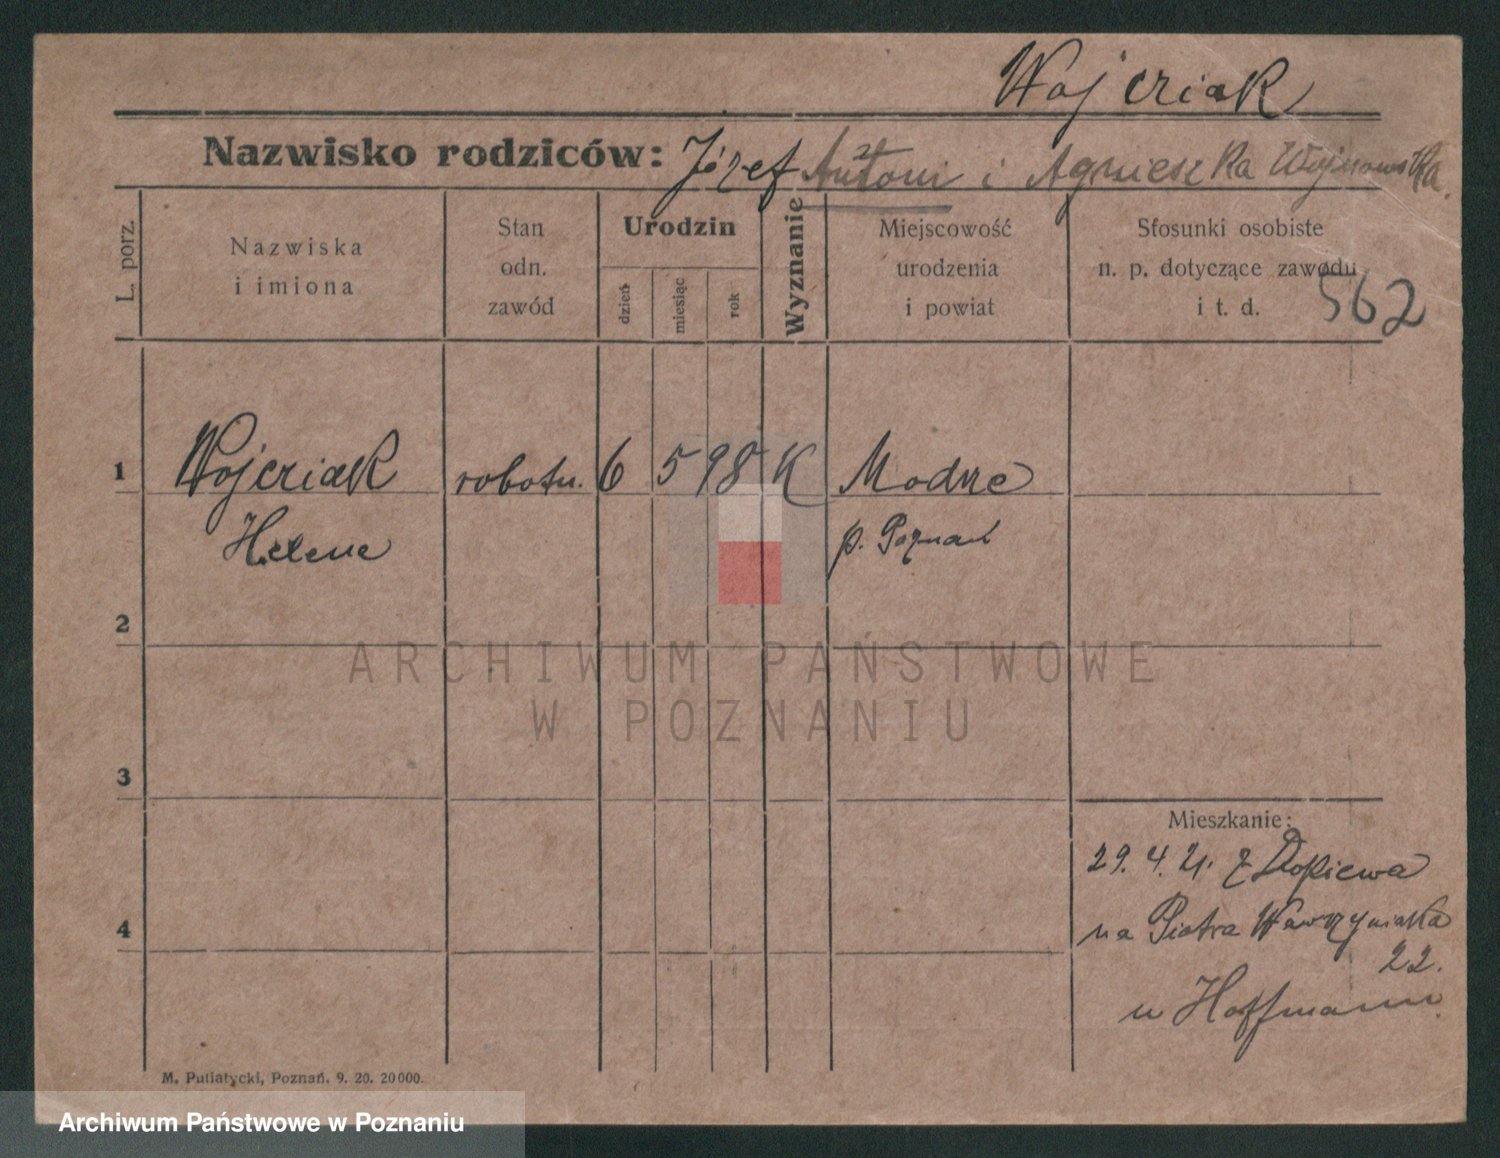 Wojciak
Nazwisko rodziców: Józef Antoni i Agnieszka Wojnowska
L. porz.
Nazwiska
i imiona
Stan
odn.
zawód
Urodzin
dzień
miesiąc
rok
Wyznanie
Miejscowość
urodzenia
i powiat
Stosunki osobiste
n. p. dotyczące zawodu
i t. d.
562
1 Wojciak robotn. 6 5 98 K Modrze
Helena p. Poznań
2
ARCHIWUM PAŃSTWOWE
W POZNANIU
3
Mieszkanie:
29. 4. 21. z Dopiewa
4 na Piotra Wawrzyniaka
22.
u Hoffmann
M. Putiatycki, Poznań. 9. 20. 20000.
Archiwum Państwowe w Poznaniu